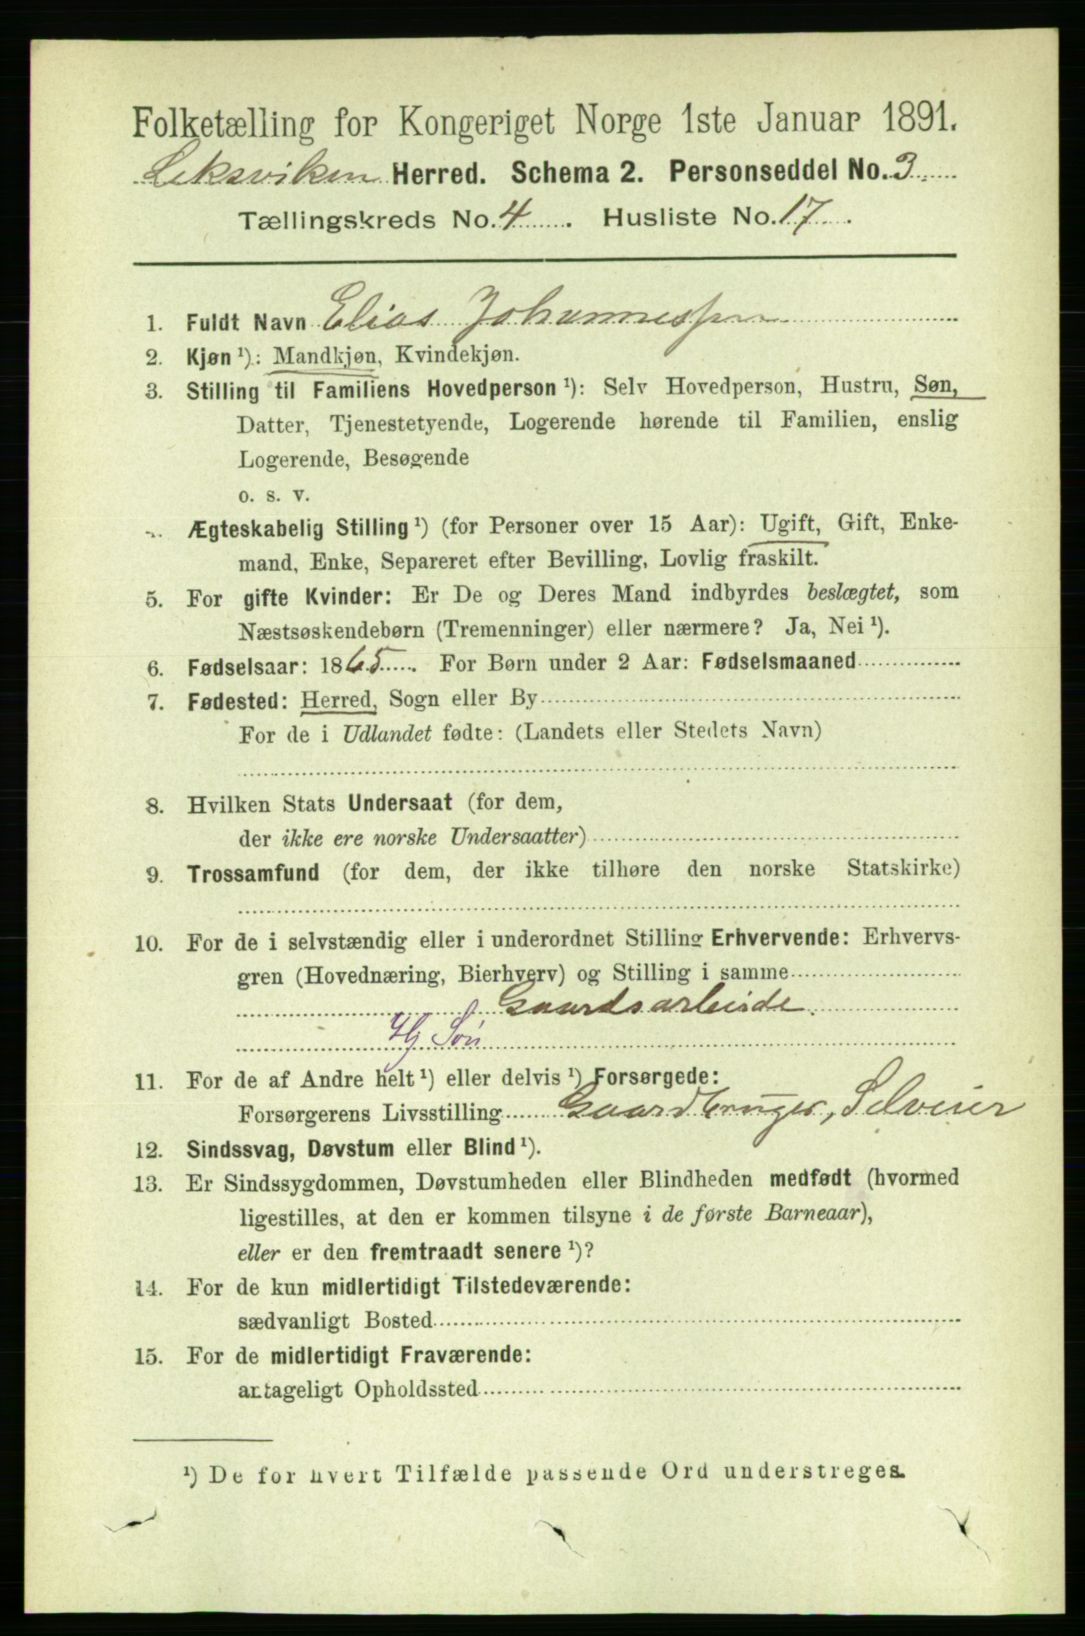 Folketælling for Kongeriget Norge 1ste Januar 1891.
Leksviken Herred. Schema 2. Personseddel No. 3.
Tællingskreds No. 4. Husliste No. 17.
1. Fuldt Navn Elias Johannessen
2. Kjøn ¹): Mandkjøn, Kvindekjøn.
3. Stilling til Familiens Hovedperson ¹): Selv Hovedperson, Hustru, Søn,
Datter, Tjenestetyende, Logerende hørende til Familien, enslig
Logerende, Besøgende
o. s. v.
Ægteskabelig Stilling ¹) (for Personer over 15 Aar): Ugift, Gift, Enke-
mand, Enke, Separeret efter Bevilling, Lovlig fraskilt.
5. For gifte Kvinder: Er De og Deres Mand indbyrdes beslægtet, som
Næstsøskendebørn (Tremenninger) eller nærmere? Ja, Nei ¹).
6. Fødselsaar: 1865. For Børn under 2 Aar: Fødselsmaaned
7. Fødested: Herred, Sogn eller By
For de i Udlandet fødte: (Landets eller Stedets Navn)
8. Hvilken Stats Undersaat (for dem,
der ikke ere norske Undersaatter)
9. Trossamfund (for dem, der ikke tilhøre den norske Statskirke)
10. For de i selvstændig eller i underordnet Stilling Erhvervende: Erhvervs-
gren (Hovednæring, Bierhverv) og Stilling i samme
Gaardsarbeide.
Hj Søn
11. For de af Andre helt ¹) eller delvis ¹) Forsørgede:
Forsørgerens Livsstilling Gaardbruger, Selveier
12. Sindssvag, Døvstum eller Blind ¹).
13. Er Sindssygdommen, Døvstumheden eller Blindheden medfødt (hvormed
ligestilles, at den er kommen tilsyne i de første Barneaar),
eller er den fremtraadt senere ¹)?
14. For de kun midlertidigt Tilstedeværende:
sædvanligt Bosted
15. For de midlertidigt Fraværende:
antageligt Opholdssted
¹) De for hvert Tilfælde passende Ord understreges.